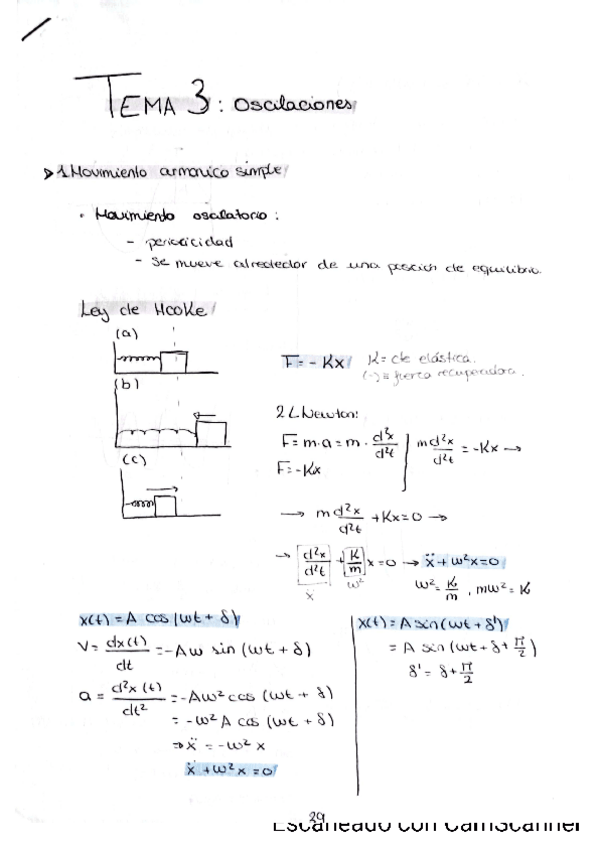 TEMA 3: Oscilaciones
1. Movimiento armonico simple
• Movimiento oscilatorio:
- periodicidad
- Se mueve alrededor de una posición de equilibrio.
Ley de Hooke
(a)
(b)
(c)
F = - Kx
K = cte elástica.
(-) = fuerza recuperadora.
2 L Newton:
F = m·a = m · d²x/d²t
F = -Kx
m d²x/d²t = -Kx →
→ m d²x/d²t + Kx = 0 →
→ d²x/d²t + K/m x = 0 → ẍ + ω²x = 0
ẍ ω²
ω² = K/m , mω² = K
x(t) = A cos (ωt + δ)
V = dx(t)/dt = -Aω sin (ωt + δ)
a = d²x(t)/dt² = -Aω² cos (ωt + δ)
= -ω² A cos (ωt + δ)
⇒ ẍ = -ω² x
ẍ + ω² x = 0
x(t) = A sin (ωt + δ')
= A sin (ωt + δ + π/2)
δ' = δ + π/2
29
Escaneado con CamScanner